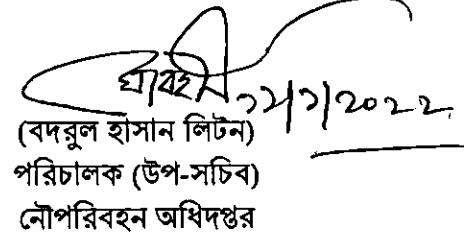 ১২/১/২০২২
(বদরুল হাসান লিটন)
পরিচালক (উপ-সচিব)
নৌপরিবহন অধিদপ্তর